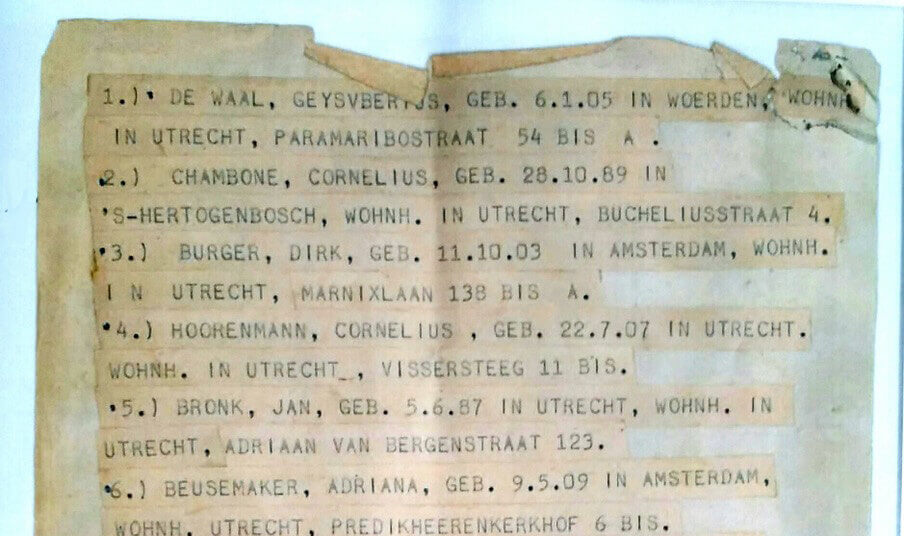 1.) DE WAAL, GEYSVBERTUS, GEB. 6.1.05 IN WOERDEN, WOHNH.
IN UTRECHT, PARAMARIBOSTRAAT 54 BIS A .
2.) CHAMBONE, CORNELIUS, GEB. 28.10.89 IN
'S-HERTOGENBOSCH, WOHNH. IN UTRECHT, BUCHELIUSSTRAAT 4.
3.) BURGER, DIRK, GEB. 11.10.03 IN AMSTERDAM, WOHNH.
I N UTRECHT, MARNIXLAAN 138 BIS A.
4.) HOORENMANN, CORNELIUS , GEB. 22.7.07 IN UTRECHT.
WOHNH. IN UTRECHT_, VISSERSTEEG 11 BIS.
5.) BRONK, JAN, GEB. 5.6.87 IN UTRECHT, WOHNH. IN
UTRECHT, ADRIAAN VAN BERGENSTRAAT 123.
6.) BEUSEMAKER, ADRIANA, GEB. 9.5.09 IN AMSTERDAM,
WOHNH. UTRECHT, PREDIKHEERENKERKHOF 6 BIS.